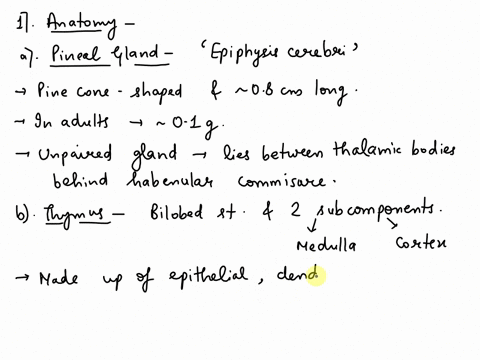 1). Anatomy -
a). Pineal Gland - 'Epiphysis cerebri'
→ Pine cone-shaped & ~0.8 cms long.
→ In adults → ~ 0.1 g.
→ Unpaired gland → lies between thalamic bodies
behind habenular commisure.
b). Thymus - Bilobed st. & 2 subcomponents.
Medulla Cortex
→ Made up of epithelial, dend